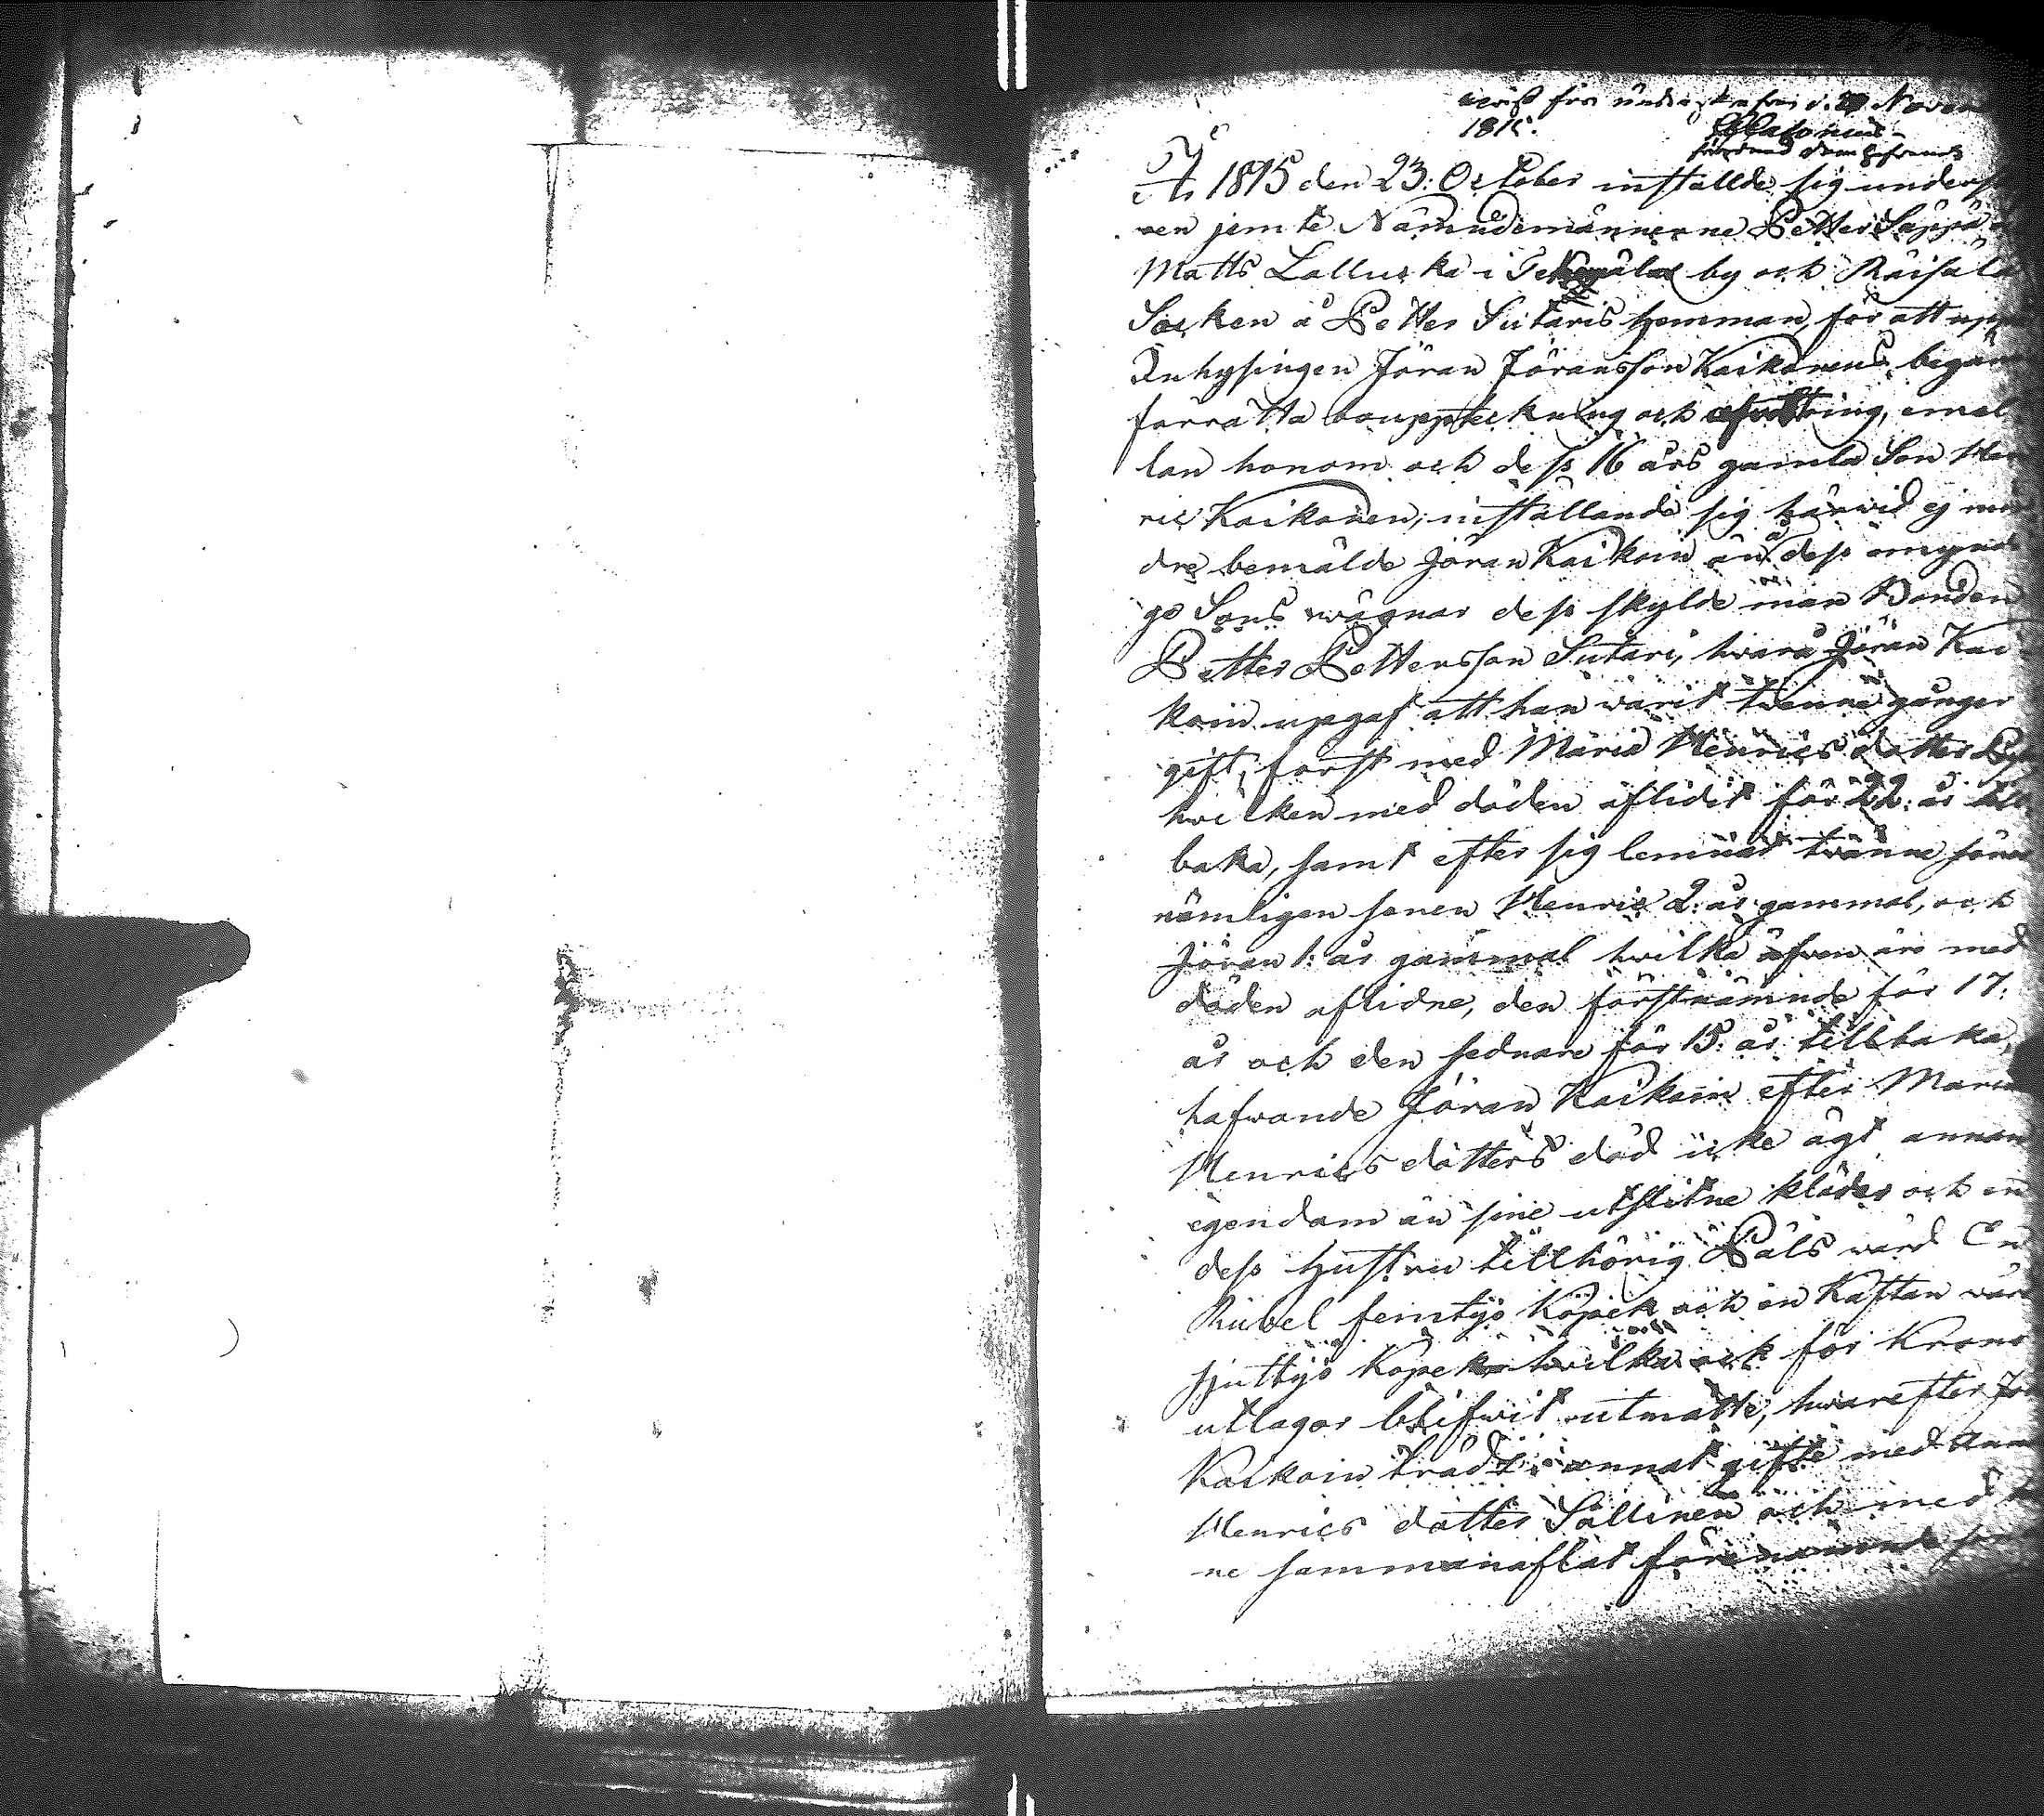 1815.
År 1815 den 23: October inställde sig underſ
nen jemte Nämndemännerne Petter Säppä
Matts Lalluka i by och Räisälä
Socken å Petter Sutaris hemman, för att upp
Inhysingen Jöran Jöransson Kaikoinens begär
förrätta bouppteckning och afvittring, emel
lan honom och dess 16 års gamla Son Hen
ric Kaikonen, inställande sig härwid ej min
dre bemälde Jöran Kaikoin än å dess omynd
ge Sons wägnar dess skylde män Bonden
Petter Pettersson Sutari, hwarå Jöran Kai
koin upgaf att han warit twenne gånger
gift, först med Maria Henrics dotter
hwilken med döden aflidit för 22: år till
baka, samt efter sig lemnat twänne söner
nämligen sonen Henric 2: år gammal, och
Jöran 1: år gammal hwilka äfwen äro med
döden aflidne, den förstnämnde för 17:
år och den sednare för 15: år tillbaka,
hafwande Jöran Kaikoin efter Maria
Henrics dotters död icke ägt annan
egendom än sine utslitne kläder och en
dess hustru tillhörig Päls wärd En
Rubel femtijo Kopek och en Kaftan wärd
sjuttijo Kopek hwilka ock för Krono
utlagor blifwit utmätte, hwarefter Jör
Kaikoin trädt i annat gifte med Anna
Henrics dotter Sallinen och med
ne sammanaflat förenämnde son